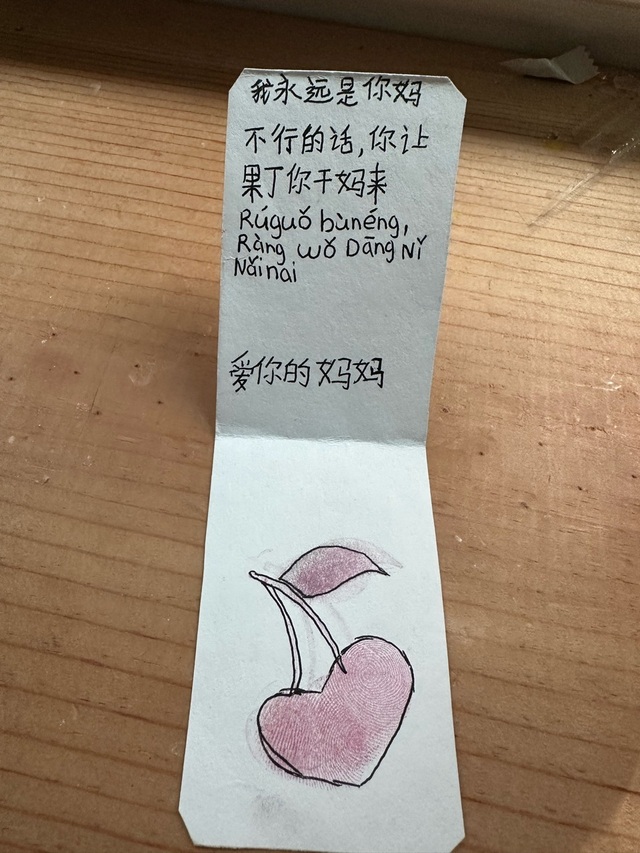 我永远是你妈
不行的话,你让
果丁你干妈来
Rúguǒ bùnéng,
Ràng wǒ Dāng Nǐ
Nǎinai
爱你的妈妈